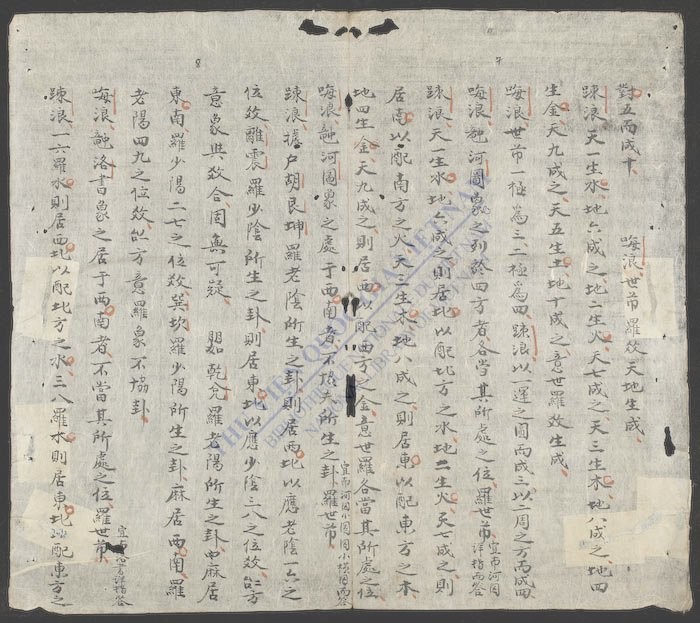 對五而成十 𠳨浪世芇羅效天地生成
疎浪天一生水地六成之地二生火天七成之天三生木地八成之地四
生金天九成之天五生土地十成之意世羅效生成
𠳨浪世芇一極爲三二極爲四疎浪以一運之圓而成三以二周之方而成四
𠳨浪河圖象之列於四方者各當其所處之位羅世芇 宜南河圖詳指而答
疎浪天一生水地六成之則居北以配北方之水地二生火天七成之則
居南以配南方之火天三生木地八成之則居東以配東方之木
地四生金天九成之則居西以配西方之金意世羅各當其所處之位
𠳨浪河圖象之處于西南者不協夫所生之卦羅世芇 宜南河圖小圓圖小橫圖而答
疎浪據艮坤羅老陰所生之卦則居西北以應老陰一六之
位效離震羅少陰所生之卦則居東北以應少陰三八之位效方
意象與效合固無可疑 乾兌羅老陽所生之卦麻居
東南羅少陽二七之位效巽坎羅少陽所生之卦麻居西南羅
老陽四九之位效方意羅象不協卦
𠳨浪洛書象之居于西南者不當其所處之位羅世芇 宜南詳指答
疎浪一六羅水則居西北以配北方之水三八羅木則居東北配東方之